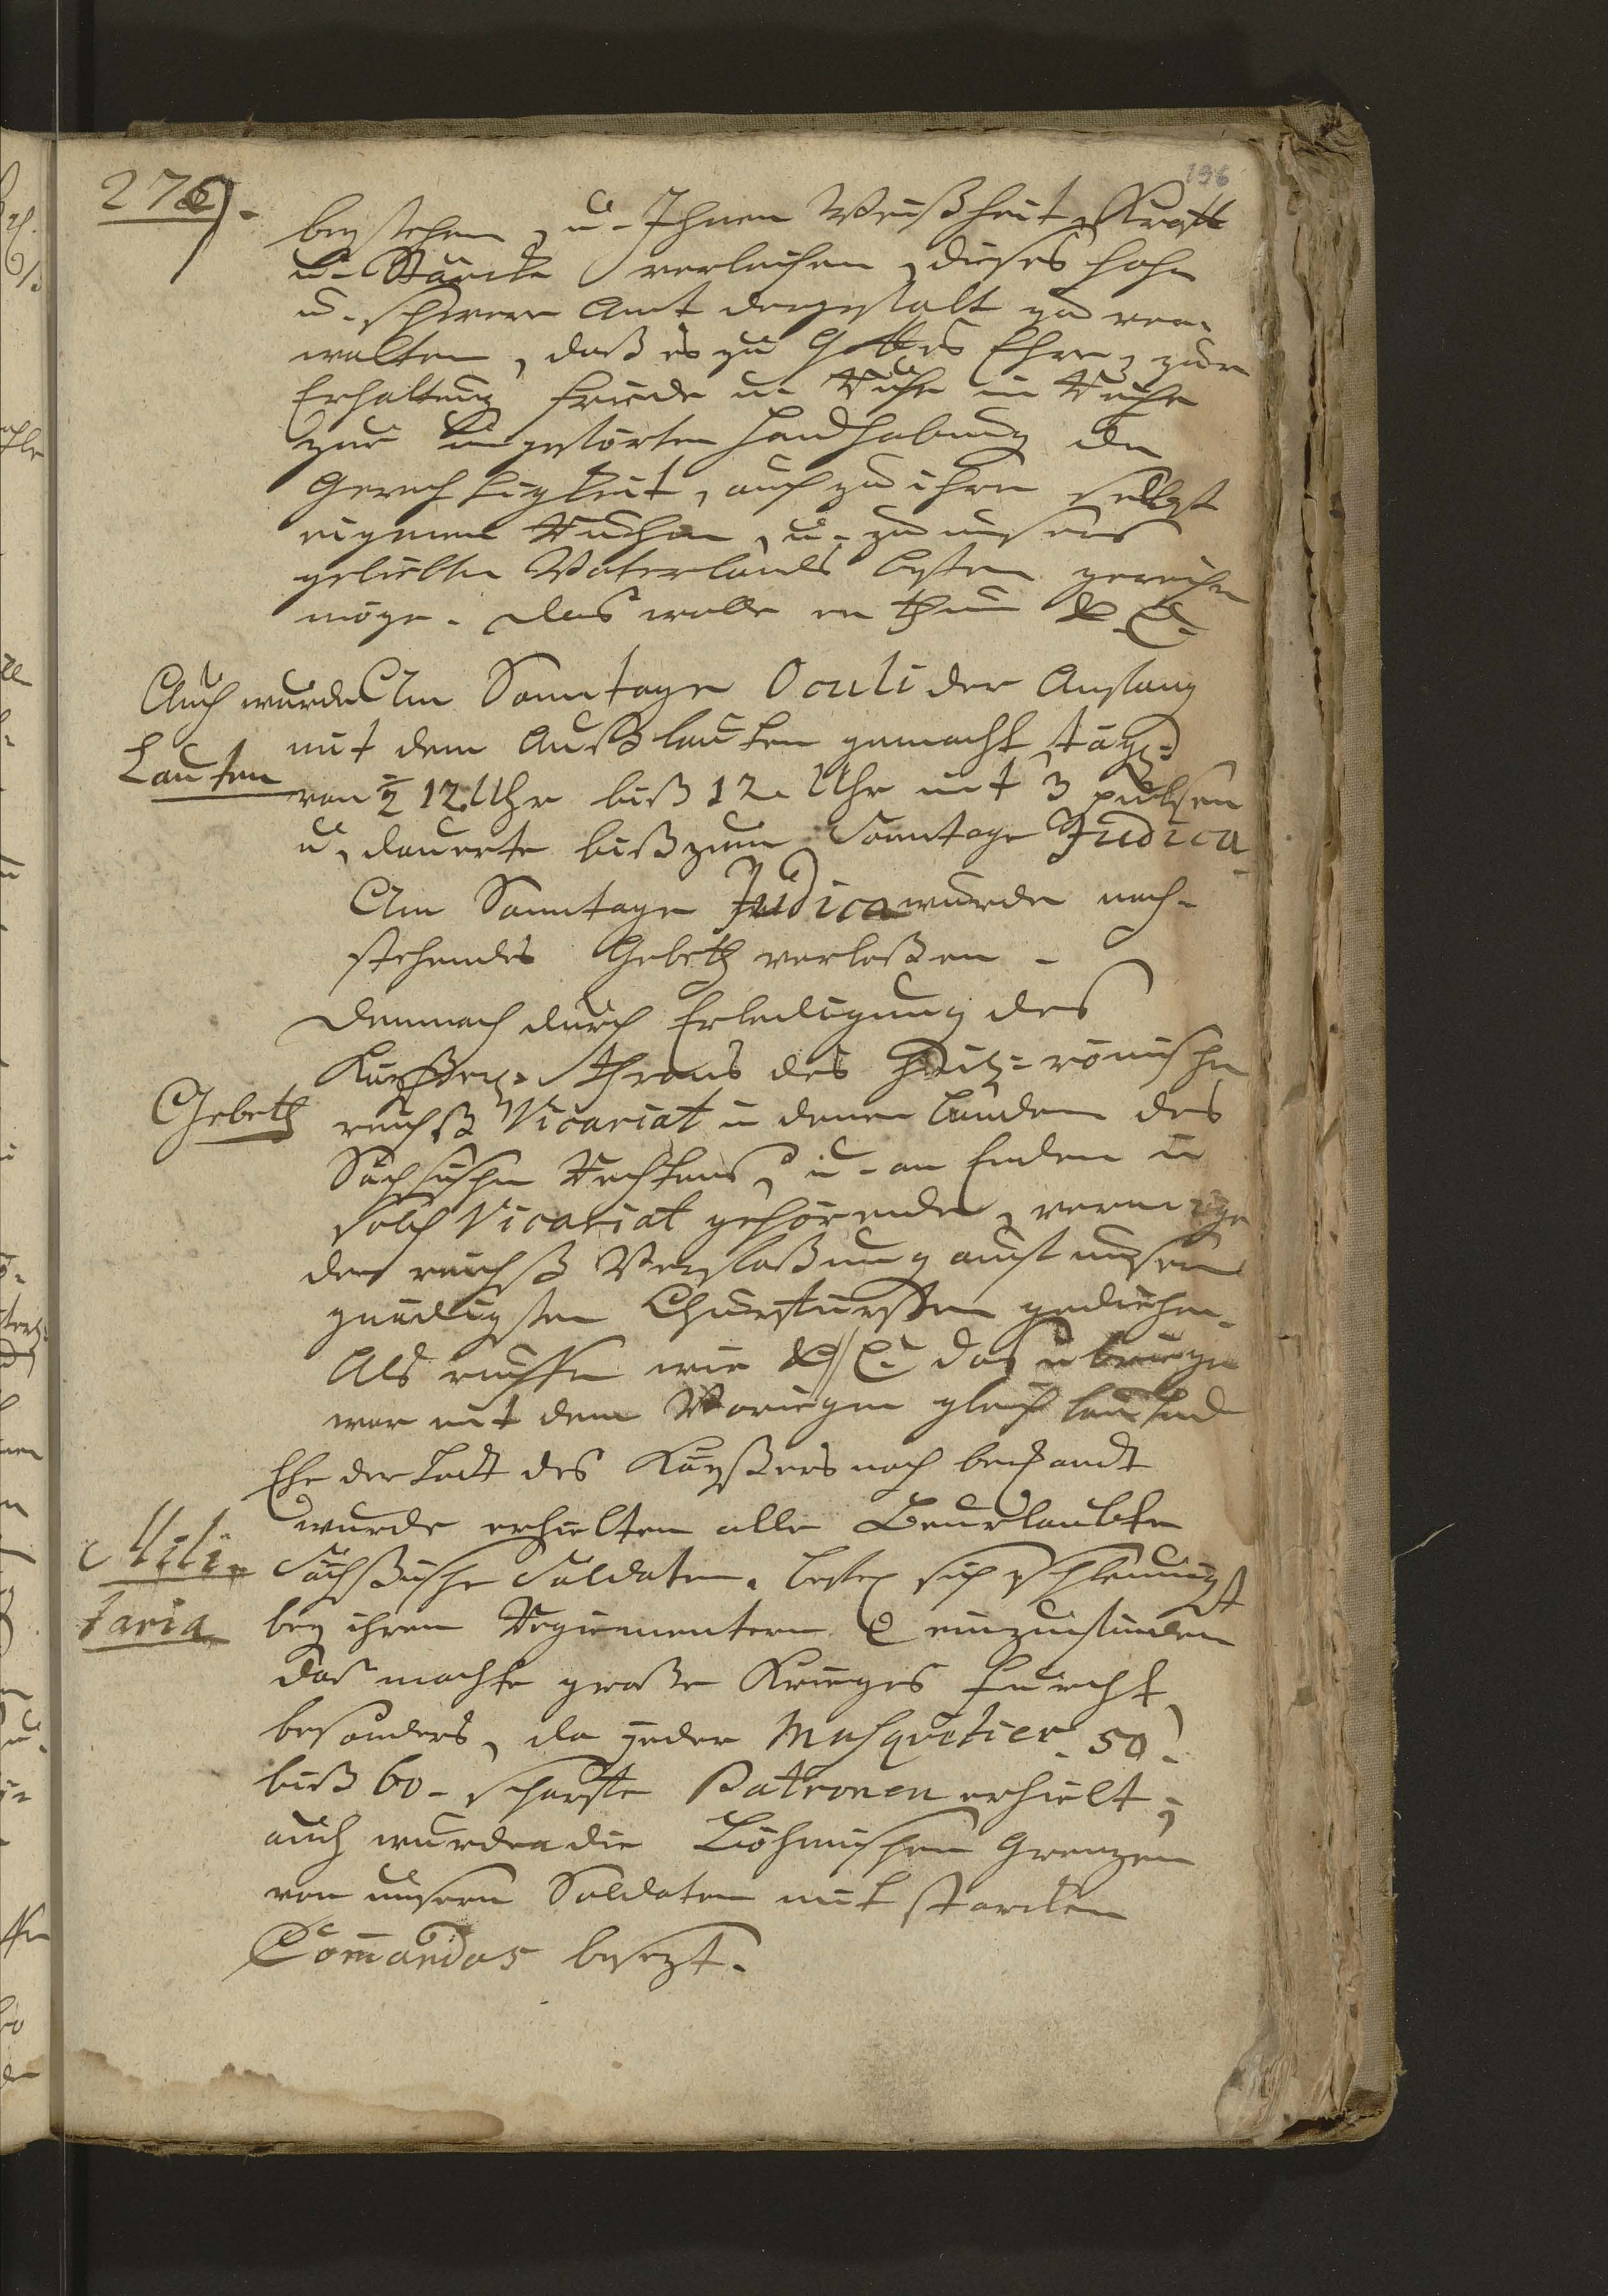 276).
196
beystehen, u. Ihnen Weißheit, Krafft
u. Stärcke verleihen, dieses hohe
u. schwere Amt dergestalt zu ver-
walten, daß es zu Gottes Ehre, zur
Erhaltung Friede u. Ruhe im Reiche
zur ungestörten Handhabung der
Gerechtigkeit, auch zu ihren selbst
eigenen Ruhm, u. zu unsers
geliebten Vaterlands besten gereichen
möge. Das wolle er thun
Auch wurde Am Sonntage Oculi der Anfang
mit dem Außlauten gemacht, tägl.
Lauten
von ½ 12 Uhr biß 12. Uhr mit 3 pulsen
u. dauerte biß zum Sonntage Judica
Am Sonntage Judica wurde nach-
stehendes Gebeth verleßen -
Demnach durch Erledigung des
Kayßerl. Throns des Heil: römischen
Gebeth
reichß Vicariat in denen Landen des
Sächsischen Rechtens, u. an Enden in
solch Vicariat gehörende, vermöge
der reichß Verfaßung auf unsern
gnädigsten Churfürsten gediehen.
Als ruffen wir das übrige
war mit dem Vorigen gleich lautend
Ehe der Todt des Kayßers noch bekandt
wurde erhielten alle Beurlaubte
Mili-
Sächßische Soldaten. sich schleunigst
taria
bey ihren Regimentern einzufinden
daß machte große Krieges Furcht,
besonders, da jeder Musquetier. 50.
biß 60 - scharffe Patronen erhielt;
auch wurden die Böhmischen Grenzen
von unsern Soldaten mit starcken
Com̄andos besezt.